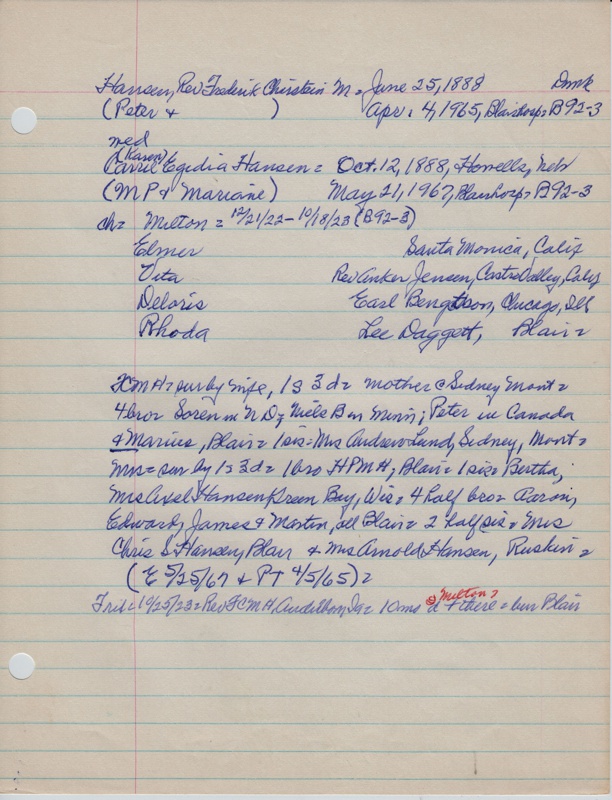 Hansen, Rev Frederik Christein M = June 25, 1888 Dnmk
(Peter + ) Apr. 4, 1965, Blair hosp = B92-3
med
(Karen)
Carrie Egidia Hansen = Oct. 12, 1888, Howells, Neb
(M P & Mariane) May 21, 1967, Blair hosp = B92-3
ch = Milton = 12/21/22 - 10/18/23 (B92-3)
Elmer Santa Monica, Calif
Vita Rev Anker Jensen, Castro Valley, Calif
Deloris Earl Bengtson, Chicago, Ill
Rhoda Lee Daggett, Blair =
FCMH = sur by wife, 1s 3d = mother @ Sidney Mont =
4 bro = Soren in N D, Niels B in Minn; Peter in Canada
& Marius, Blair = 1 sis = Mrs Andrew Lund, Sidney, Mont =
Mrs = sur by 1s 3d = 1 bro HPMH, Blair = 1 sis = Bertha,
Mrs Axel Hansen Green Bay, Wis = 4 half bro = Aaron,
Edward, James & Martin, all Blair = 2 half sis = Mrs
Chris S Hansen, Blair & Mrs Arnold Hansen, Ruskin =
(E 5/25/67 & PT 4/5/65) =
Trib = 10/25/23 = Rev FCMH, Audubon, Ia = 10 mo s d there = bur Blair
Milton?